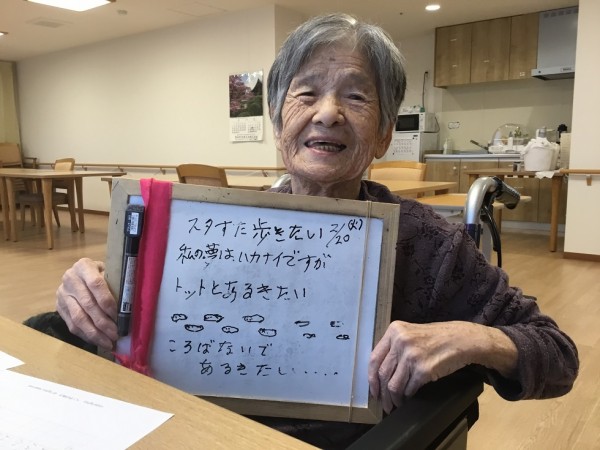 スタすた歩きたい 2/20(火)
私の夢は、ハカナイですが
トットとあるきたい
ころばないで
あるきたい・・・・・